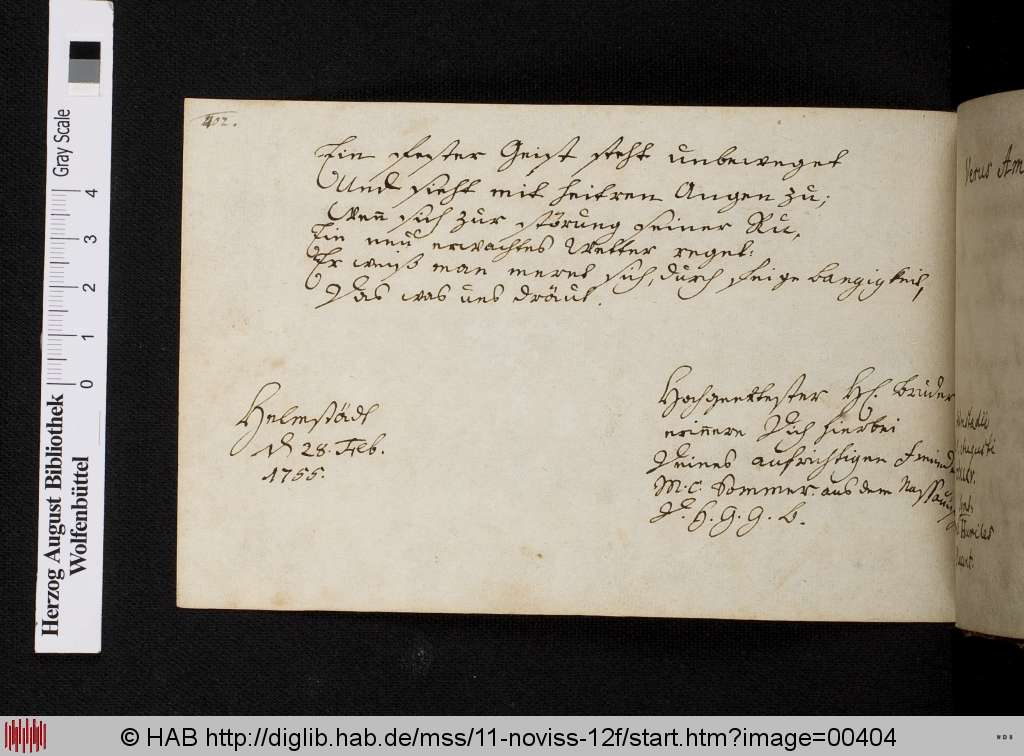 402.
Ein fester Geist steht unbeweget
Und sieht mit heitren Augen zu;
Wen̄ sich zur störung seiner Ru,
Ein neu erwachtes Wetter reget:
Er weiß man mehret sich, durch feige bangigkeit,
Das was uns dräut.
Helmstädt
d 28. Feb.
1755.
Hochgeehrtester HE. Bruder
erinnere Dich hierbei
Deines aufrichtigen Freundes
M. C. Sommer. aus dem Nassauis
D. H. G. G. B.
Verus Am
Herzog August Bibliothek
Wolfenbüttel
Gray Scale
0 1 2 3 4
© HAB http://diglib.hab.de/mss/11-noviss-12f/start.htm?image=00404
WDB